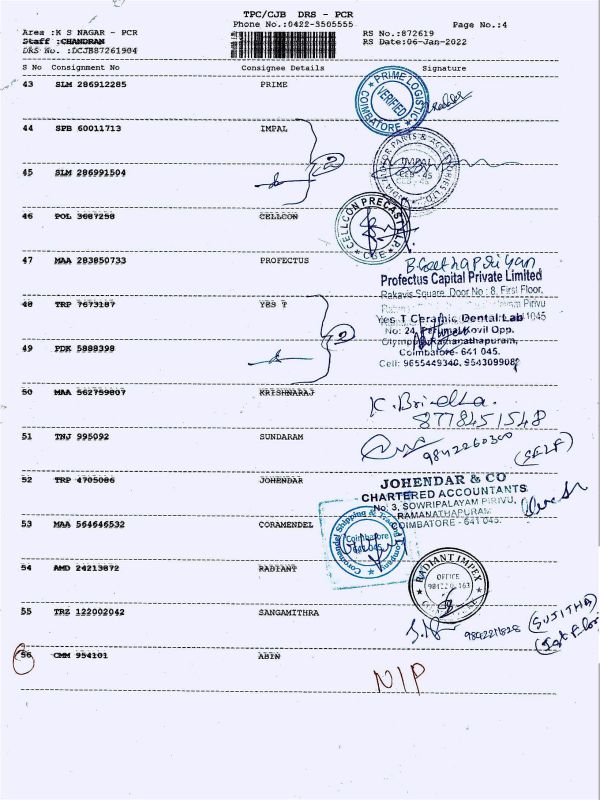 TPC/CJB DRS - PCR
Phone No.:0422-3505555
Page No.:4
Area :K S NAGAR - PCR
Staff :CHANDRAN
DRS No. :DCJB87261904
RS No.:872619
RS Date:06-Jan-2022
S No Consignment No Consignee Details Signature
43 SLM 286912285 PRIME
PRIME LOGISTIC
VERIFIED
COIMBATORE
44 SPB 60011713 IMPAL
2
PARTS &
IMPAL
CBE - 45
45 SLM 286991504
46 POL 3687258 CELLCON
CELLCON PRECAST
CBE
47 MAA 283850733 PROFECTUS
B. Geethapriyan
Profectus Capital Private Limited
Rakavis Square, Door No : 8, First Floor,
48 TRP 7673187 YES T
2
Yes T Ceramic Dental Lab
No: 24, Perumal Kovil Opp.
Olympus, Ramanathapuram,
Coimbatore- 641 045.
Cell: 9655449340, 9543099082
49 PDK 5888398
50 MAA 562759807 KRISHNARAJ
K. Brindha.
8778451548
51 TNJ 995092 SUNDARAM
9842260300
(SELF)
52 TRP 4705086 JOHENDAR
JOHENDAR & CO
CHARTERED ACCOUNTANTS
No: 3, SOWRIPALAYAM PIRIVU,
RAMANATHAPURAM,
COIMBATORE - 641 045.
53 MAA 564646532 CORAMENDEL
Coromandel Shipping & Trading Company
Coimbatore
641 045
54 AMD 24213872 RADIANT
RADIANT IMPEX
OFFICE
55 TRZ 122002042 SANGAMITHRA
(SUJITHA)
56 CMM 954101 ABIN
NIP